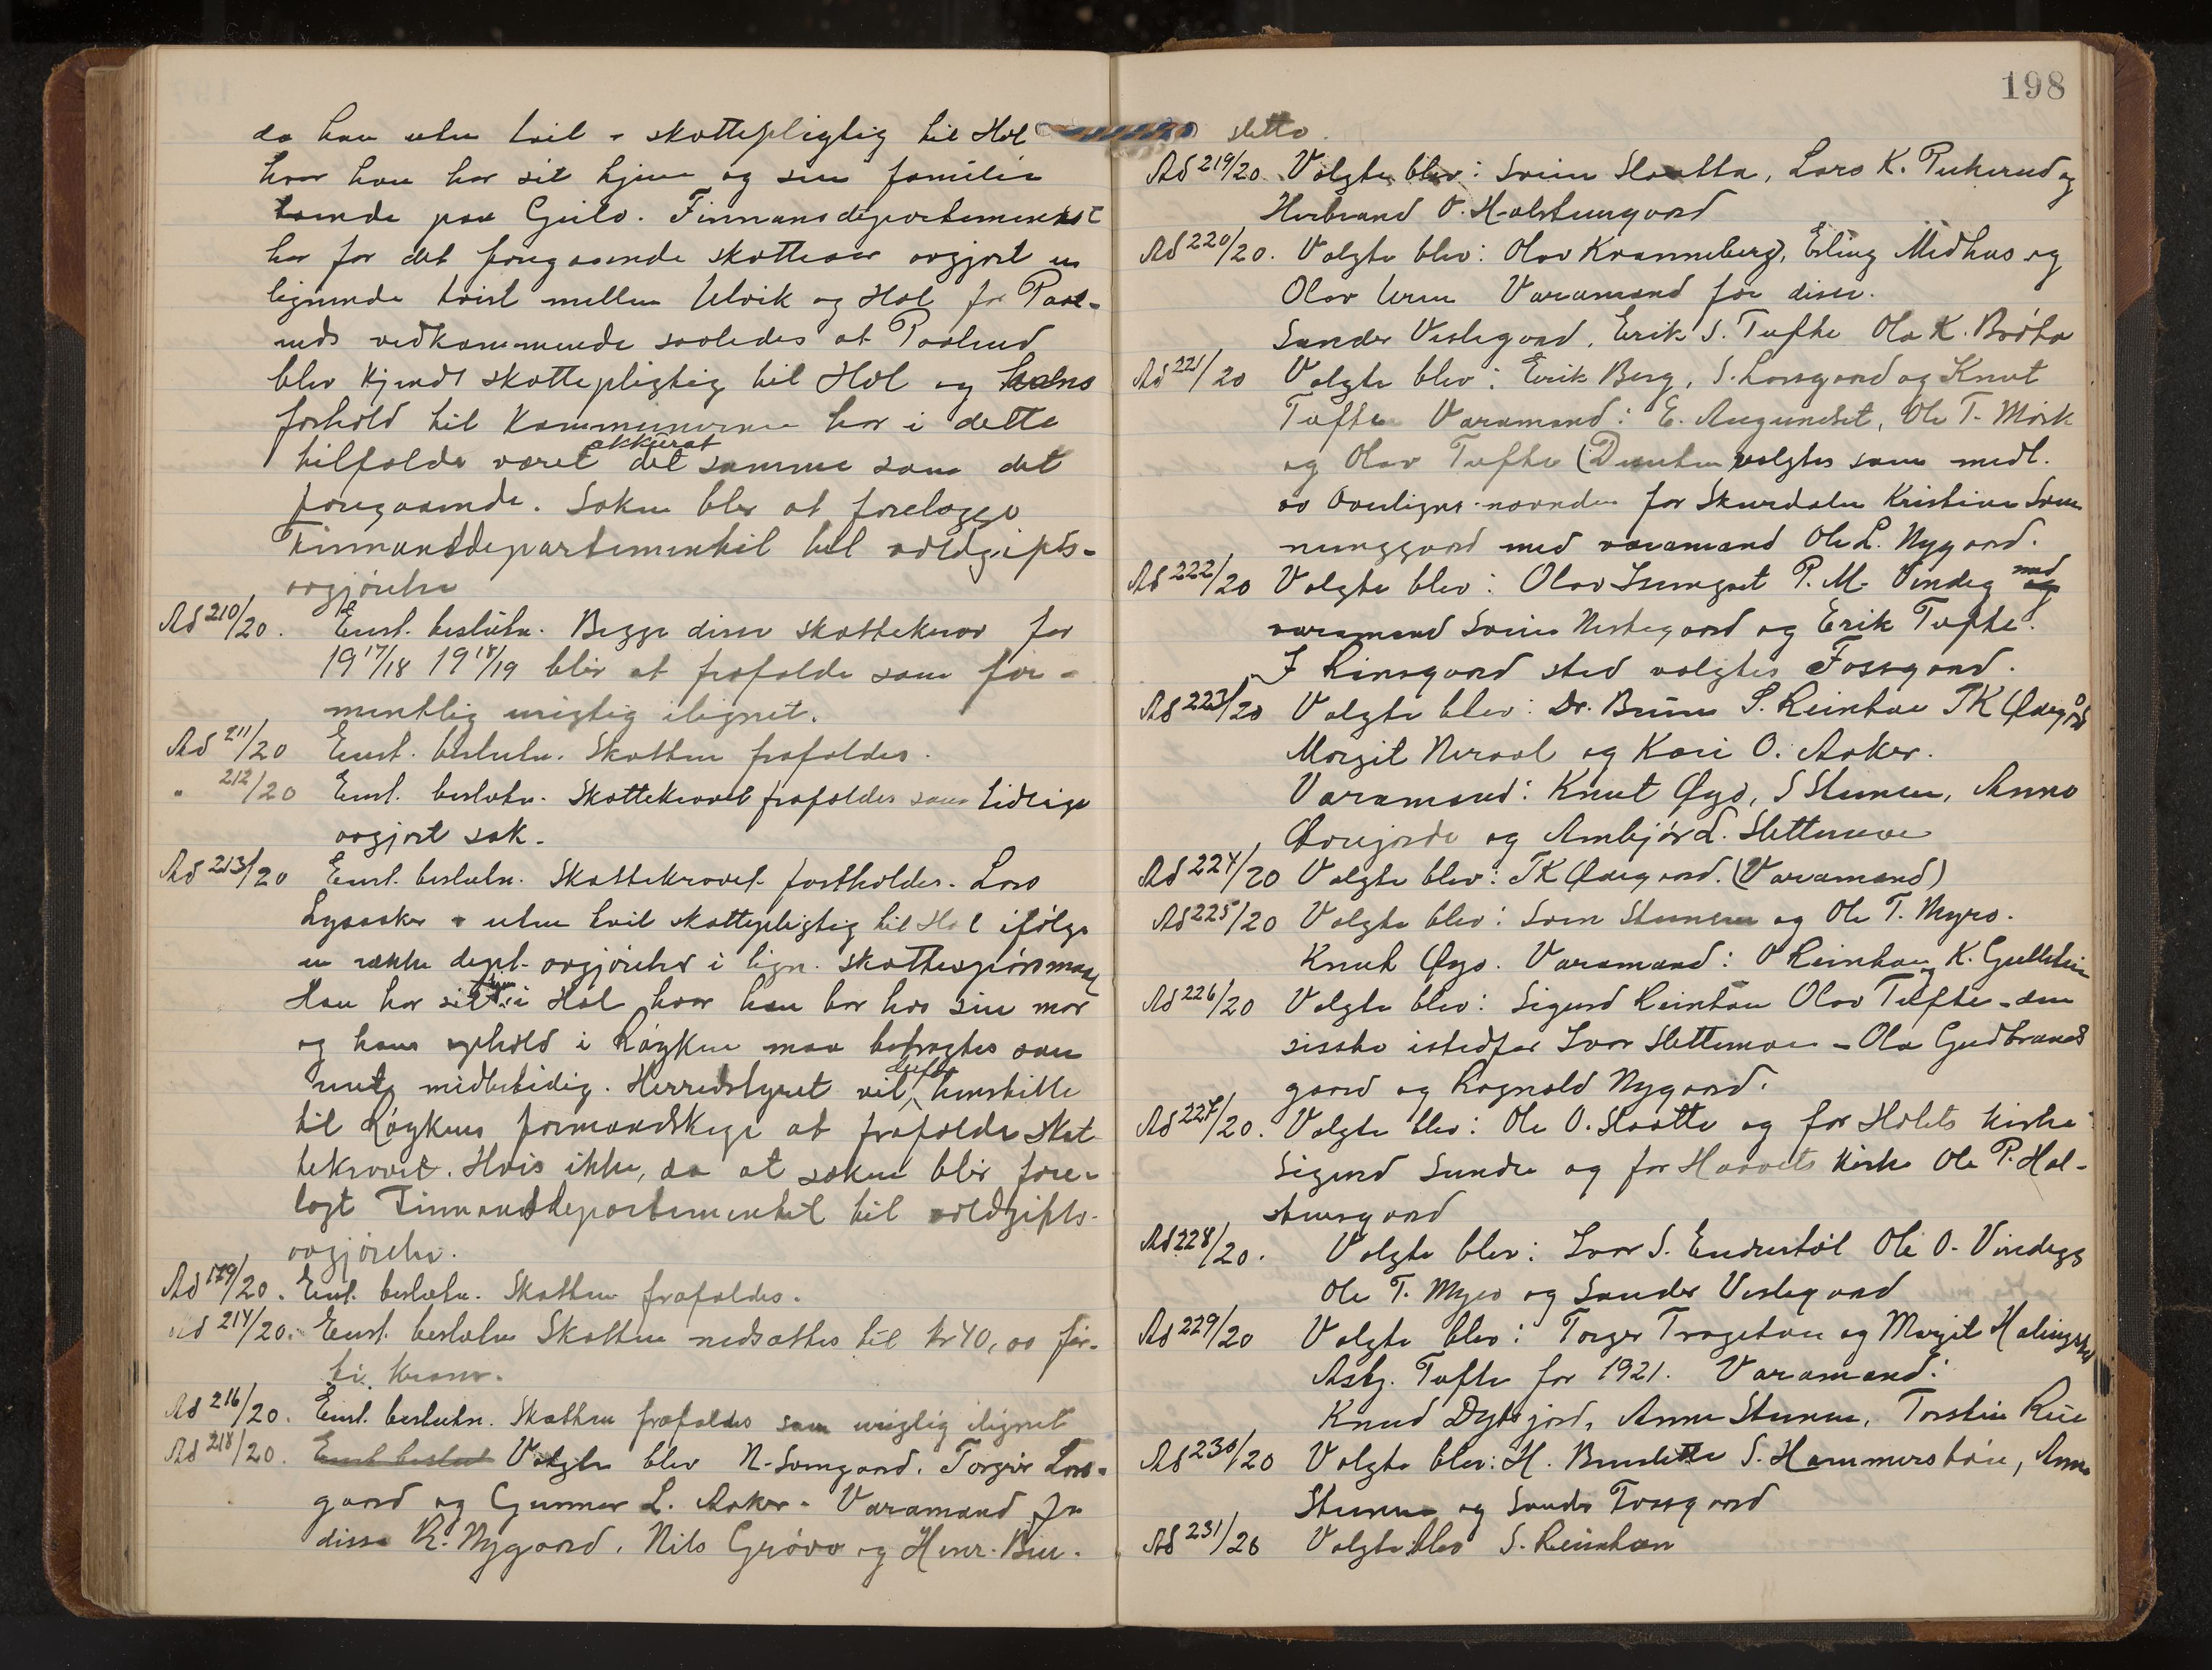 da han uten tvil er skattepligtig til Hol
hvor han har sit hjem og sin familie
boende paa Geilo. Finansdepartementet
har for det foregaaende skatteaar avgjort en
lignende tvist mellem Ulvik og Hol for Paal-
unds vedkommende saaledes at Paalund
blev kjendt skattepligtig til Hol og hans
forhold til kommunerne har i dette
akkurat
tilfælde været det samme som det
foregaaende. Saken blev at forelægge
Finansdepartementet til voldgifts-
avgjørelse
Ad 210/20. Enst. beslutn. Begge disse skattekrav for
1917/18 1918/19 blir at frafalde som for-
mentlig urigtig ilignet.
Ad 211/20 Enst. beslutn. Skatten frafaldes.
" 212/20 Enst. beslutn. Skattekravet frafaldes som tidlige
avgjort sak.
Ad 213/20 Enst. beslutn. Skattekravet fastholdes. Lars
Lysaaker er uten tvil skattepligtig til Hol ifølge
en række dept. avgjørelser i lign. skattespørsmaal
Han har sit hjem i Hol hvor han bor hos sin mor
og hans ophold i Røyken maa betragtes som
midlertidig. Herredstyret vil derfor henstille
til Røykens formandskap at frafalde skat-
tekravet. Hvis ikke, da at saken blir fore-
lagt Finansdepartementet til voldgifts-
avgjørelse.
Ad 179/20. Enst. beslutn. Skatten frafaldes.
Ad 214/20. Enst. beslutn Skatten nedsættes til kr 40,00 før-
ti kroner.
Ad 216/20. Enst. beslutn. Skatten frafaldes som urigtig ilignet
Ad 218/20. Enst beslut Valgte blev N. Sveingaard, Torgeir Lars-
gaard og Gunnar L. Aaker. Varamænd for
disse R. Nygaard, Nils Grøvo og Henr. Bru-
198
sletto.
Ad 219/20. Valgte blev: Svein Slaatta, Lars K. Pukerud og
Herbrand O. Holstensgaard
Ad 220/20. Valgte blev: Olav Kvanneberg, Erling Medhus og
Olav Uren Varamænd for disse.
Sander Veslegaard, Erik S. Tufte Ola K. Bråta
Ad 221/20 Valgte blev: Erik Berg, S. Larsgaard og Knut
Tufte Varamænd: E. Augunset, Ole T. Mørk
og Olav Tufte (Desuten valgtes som medl.
av Overligns-nævnden for Skurdalen Kristian Svein
nunggard med varamand Ole L. Nygaard.
med
Ad 222/20 Valgte blev: Olav P. M. Vindeg og
varamænd Svein Nestegaard og Erik Tufte.
I Rinsgaard sted valgtes Fossgaard.
Ad 223/20 Valgte blev: Dr. Bruun S. Reinton TK Øvegård
Margit Neraal og Kari O. Aaker.
Varamænd: Knut Øyo, S Stenersen, Anna
Øvrejorde og Ambjør L. Slettemoen
Ad 224/20 Valgte blev: TK Øvegaard. (Varamand)
Ad 225/20 Valgte blev: Sven Stenersen og Ole T. Myro.
Knut Øyo. Varamænd: O Reinton og K. Gullstein
Ad 226/20 Valgte blev: Sigurd Reinton Olav Tufte - den
sisste istedfor Ivar Slettemoen - Ola Gudbrands
gaard og Ragnvald Nygaard.
Ad 227/20. Valgte blev: Ole O. Slaatto og for Holets kirke
Sigurd Sundre og for Hovets kirke Ole P. Hol-
stensgaard
Ad 228/20. Valgte blev: Ivar S. Endrestøl Ole O. Vindegg
Ole T. Myro og Sander Veslegaard
Ad 229/20 Valgte blev: Torger Trageton og Margit Halingstad
Asbj. Tufte for 1921. Varamænd:
Knud Dybsjord, Anne Stenersen, Torstein Rue
Ad 230/20 Valgte blev: H. Brusletto S. Hammersbøen, Anna
Stenersen og Sander Fossgaard
Ad 231/20 Valgte blev S. Reinton